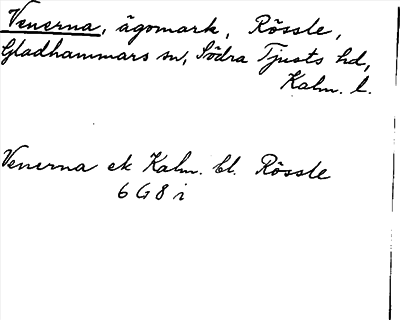 Venerna, ägomark, Rössle,
Gladhammars sn, Södra Tjusts hd,
Kalm. l.
Venerna ek Kalm. bl. Rössle
6 G 8 i